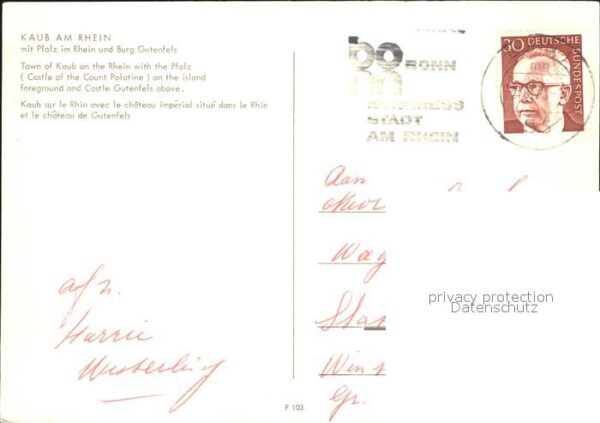 KAUB AM RHEIN
mit Pfalz im Rhein und Burg Gutenfels
Town of Kaub on the Rhein with the Pfalz
( Castle of the Count Palatine ) on the island
foreground and Castle Gutenfels above.
Kaub sur le Rhin avec le château impérial situé dans le Rhin
et le château de Gutenfels
BONN
KONGRESS
STADT
AM RHEIN
30 DEUTSCHE
BUNDESPOST
Aan
afz.
Harrie
Westerling
Gr.
privacy protection
Datenschutz
F 103